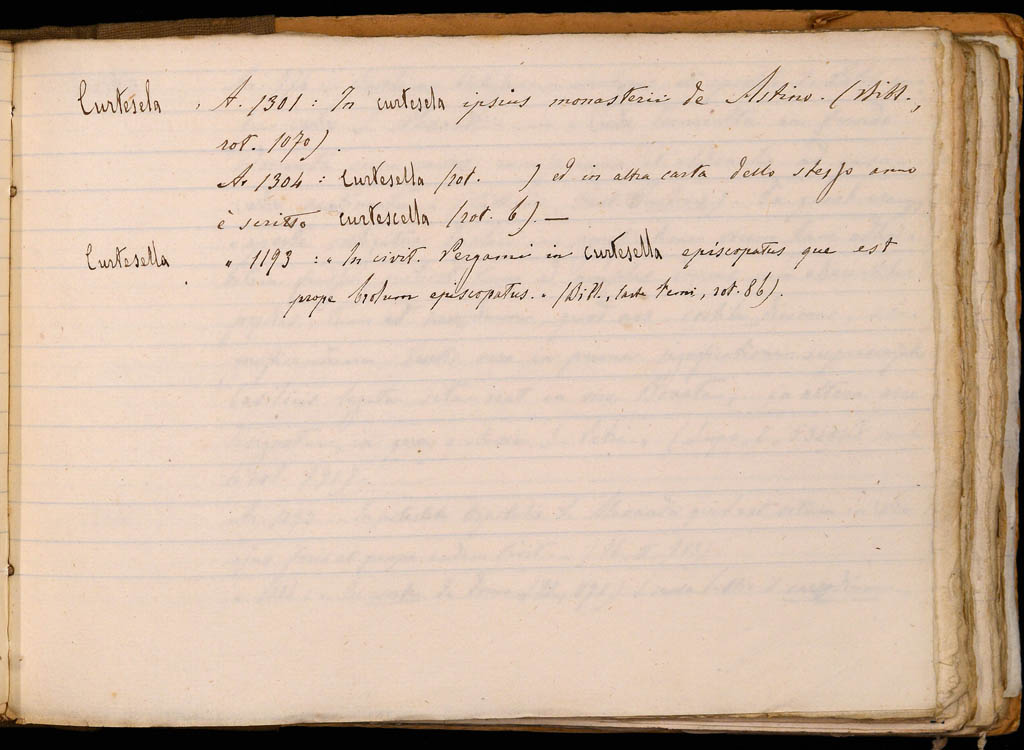 Curtesela , A. 1301 : In curtesela ipsius monasterii de Astino. (Bibl.,
rot. 1070).
A. 1304 : Curtesella (rot. ) ed in altra carta dello stesso anno
è scritto curtescella (rot. 6). —
Curtesella " 1193 : " In civit. Pergami in curtesella episcopatus que est
prope brolum episcopatus. " (Bibl., carte , rot. 86).